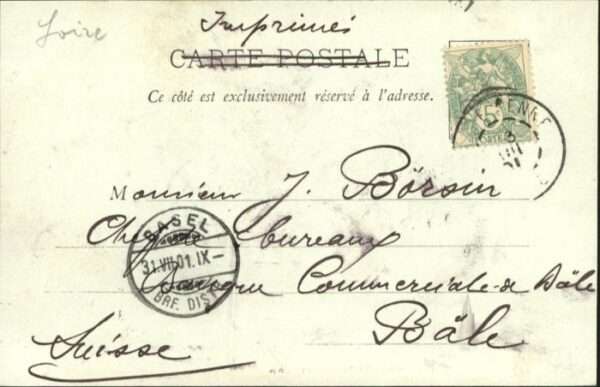 Loire
Imprimés
CARTE POSTALE
Ce côté est exclusivement réservé à l'adresse.
5
Monsieur J. Börsin
BASEL
Chef de bureaux
31.VII.01.IX-
Banque Commerciale de Bâle
BRF. DIST.
Bâle
Suisse